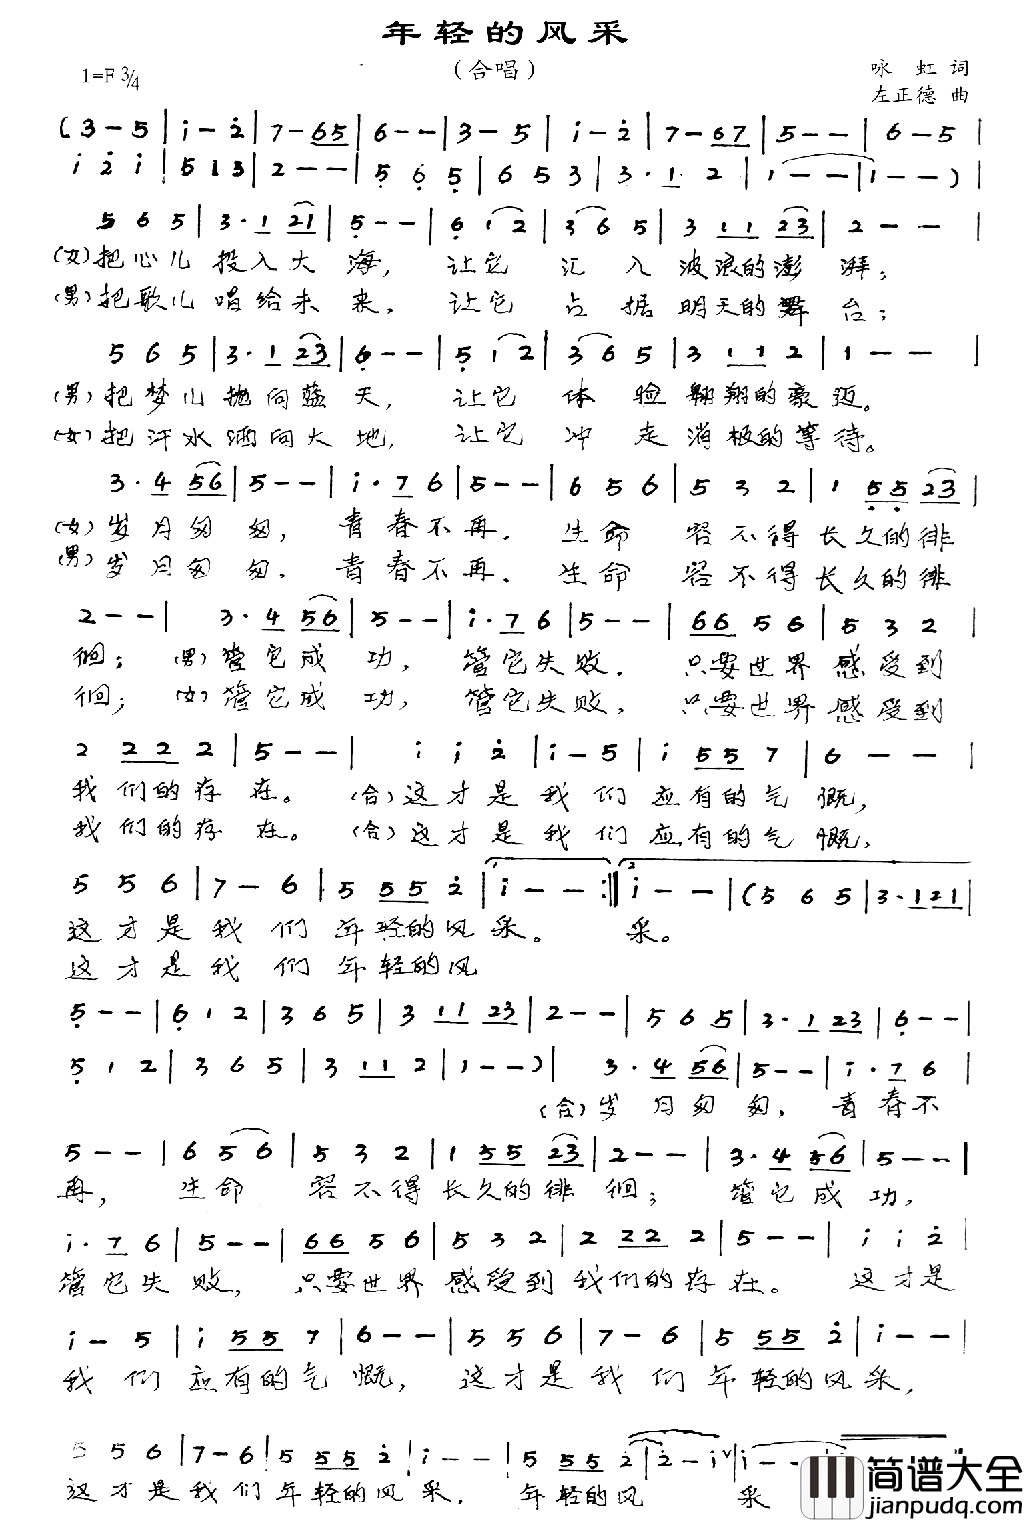 年轻的风采
（合唱）
1=F 3/4
咏 虹 词
左正德 曲
(3 – 5 | i – 2̇ | 7 – 6 5 | 6 – – | 3 – 5 | i – 2̇ | 7 – 6 7 | 5 – – | 6 – 5 |
i 2̇ i | 5 1 3 | 2 – – | 5̣ 6̣ 5̣ | 6 5 3 | 3 · 1 2 | 1 – – | 1 – – ) |
5 6 5 | 3 · 1 2 1 | 5̣ – – | 6̣ 1 2 | 3 6 5 | 3 1 1 2 3 | 2 – – |
(女) 把心儿投入大海, 让它汇入波浪的澎湃;
(男) 把歌儿唱给未来, 让它占据明天的舞台;
5 6 5 | 3 · 1 2 3 | 6̣ – – | 5̣ 1 2 | 3 6 5 | 3 1 1 2 | 1 – – |
(男) 把梦儿抛向蓝天, 让它体验翱翔的豪迈。
(女) 把汗水洒向大地, 让它冲走消极的等待。
3 · 4 5 6 | 5 – – | i · 7 6 | 5 – – | 6 5 6 | 5 3 2 | 1 5̣ 5̣ 2 3 |
(女) 岁月匆匆, 青春不再, 生命容不得长久的徘
(男) 岁月匆匆, 青春不再, 生命容不得长久的徘
2 – – | 3 · 4 5 6 | 5 – – | i · 7 6 | 5 – – | 6 6 5 6 | 5 3 2 |
徊; (男) 管它成功, 管它失败, 只要世界感受到
徊; (女) 管它成功, 管它失败, 只要世界感受到
2 2 2 2 | 5 – – | i i 2̇ | i – 5 | i 5 5 7 | 6 – – |
我们的存在。 (合) 这才是我们应有的气慨,
我们的存在。 (合) 这才是我们应有的气慨,
5 5 6 | 7 – 6 | 5 5 5 2̇ | 1. i – – :‖ 2. i – – | (5 6 5 | 3 · 1 2 1 |
这才是我们年轻的风采。 采。
这才是我们年轻的风
5̣ – – | 6̣ 1 2 | 3 6 5 | 3 1 1 2 3 | 2 – – | 5 6 5 | 3 · 1 2 3 | 6̣ – – |
5̣ 1 2 | 3 6 5 | 3 1 1 2 | 1 – – ) | 3 · 4 5 6 | 5 – – | i · 7 6 |
(合) 岁月匆匆, 青春不
5 – – | 6 5 6 | 5 3 2 | 1 5 5 2 3 | 2 – – | 3 · 4 5 6 | 5 – – |
再, 生命容不得长久的徘徊; 管它成功,
i · 7 6 | 5 – – | 6 6 5 6 | 5 3 2 | 2 2 2 2 | 5 – – | i i 2̇ |
管它失败, 只要世界感受到我们的存在。 这才是
i – 5 | i 5 5 7 | 6 – – | 5 5 6 | 7 – 6 | 5 5 5 2̇ | i – – |
我们应有的气慨, 这才是我们年轻的风采,
5 5 6 | 7 – 6 | 5 5 5 2̇ | i – – | 5 5 5 2̇ | 2̇ – i | i – – |
这才是我们年轻的风采, 年轻的风采
简谱大全
jianpudq.com